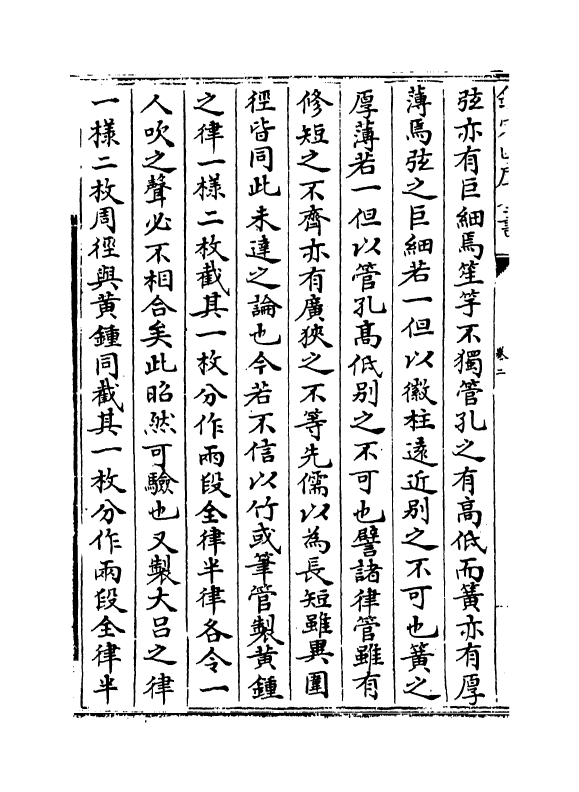 弦亦有巨細焉笙竽不獨管孔之有高低而簧亦有厚
薄焉弦之巨細若一但以徽柱遠近别之不可也簧之
厚薄若一但以管孔髙低别之不可也譬諸律管雖有
修短之不齊亦有廣狹之不等先儒以為長短雖異圍
徑皆同此未達之論也今若不信以竹或筆管製黄鍾
之律一様二枚截其一枚分作兩段全律半律各令一
人吹之聲必不相合矣此昭然可驗也又製大吕之律
一様二枚周徑與黄鍾同截其一枚分作兩段全律半
卷二